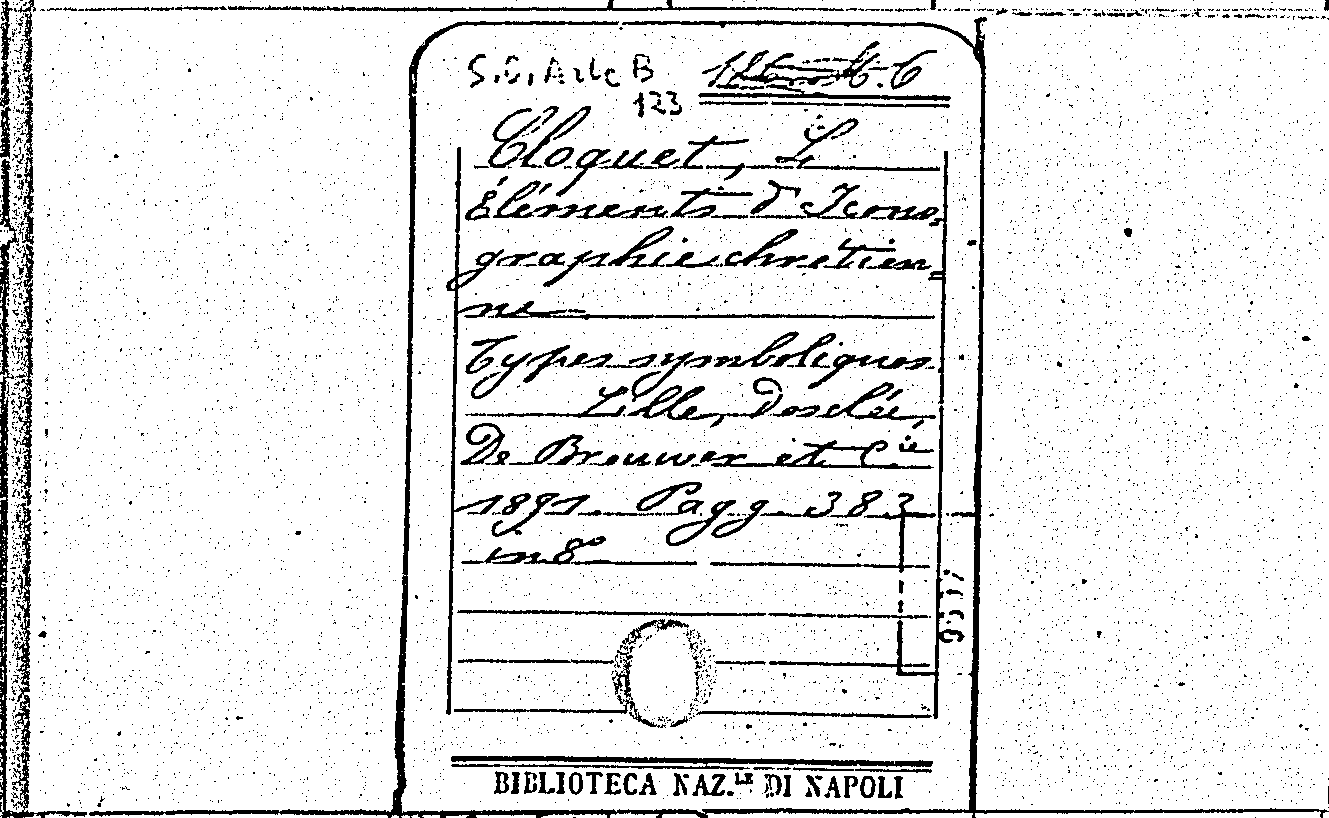 S.C. Arte B
123
Cloquet, L
Éléments d'Icono=
graphie chrétien=
ne
Types symboliques
Lille, Desclée,
De Brouwer et C.ie
1891. Pagg. 383
in 8°
BIBLIOTECA NAZ.LE DI NAPOLI